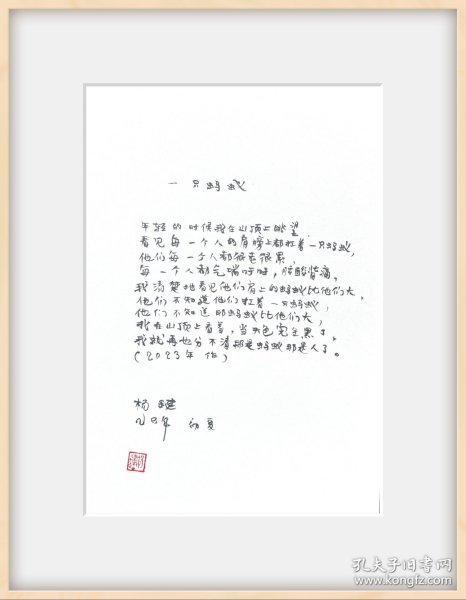 一只蚂蚁
年轻的时候我在山顶上眺望，
看见每一个人的肩膀上都扛着一只蚂蚁，
他们每一个人都很累很累，
每一个人都气喘吁吁，腰酸背痛。
我清楚地看见他们肩上的蚂蚁比他们大，
他们不知道他们扛着一只蚂蚁，
他们不知道那蚂蚁比他们大，
我在山顶上看着，当天色完全黑了，
我就再也分不清那是蚂蚁那是人了。
(2023年作)
杨键
初夏
孔夫子旧书网
www.kongfz.com